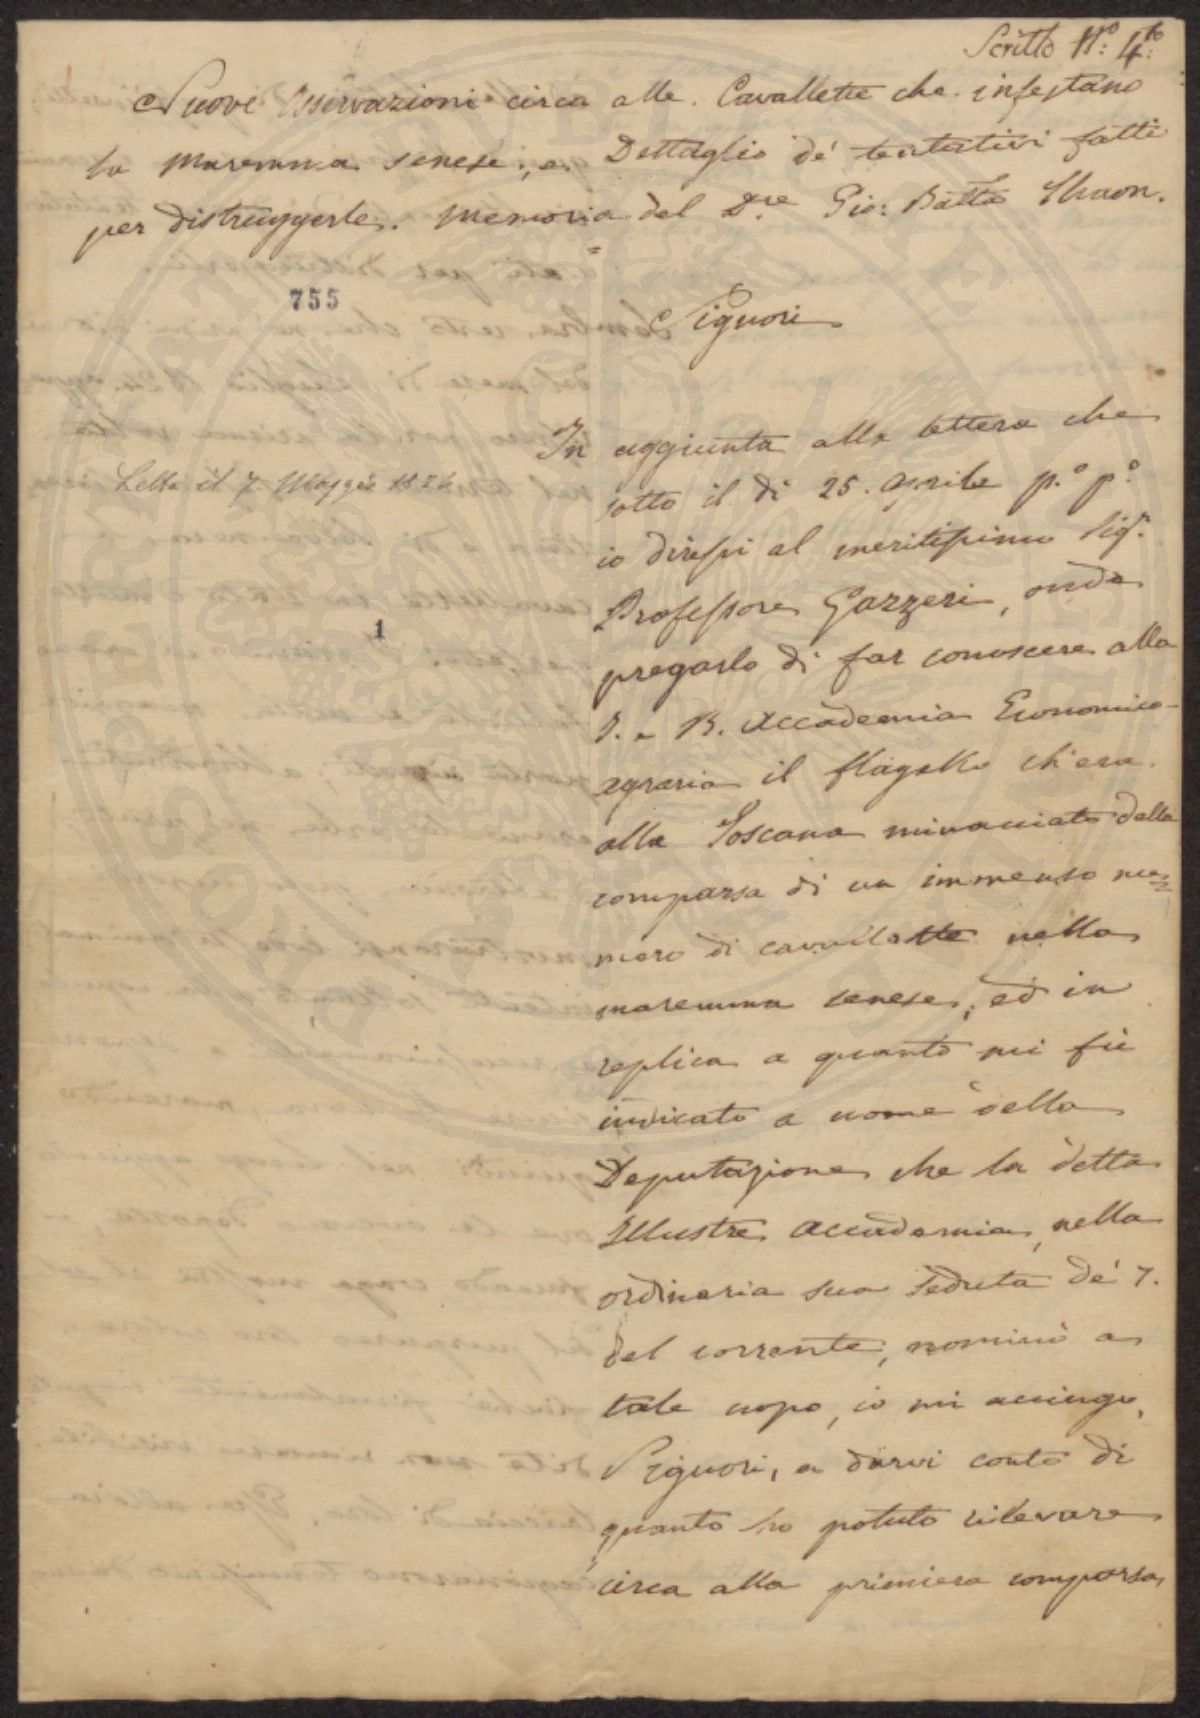 Scritto N.º 4.to
Nuove Osservazioni circa alle Cavallette che infestano
la Maremma senese, e Dettaglio de' tentativi fatti
per distruggerle. Memoria del D.re Gio: Batta Thaon.
755
Signori
In aggiunta alla lettera che
Letta il 7. Maggio 1826
sotto il dì 25. Aprile p.º p.º
io diressi al meritissimo Sig.r
Professore Gazzeri, onde
1
pregarlo di far conoscere alla
I. e R. Accademia Economico-
agraria il flagello ch'era
alla Toscana minacciato dalla
comparsa di un immenso nu=
mero di cavallette nella
maremma senese, ed in
replica a quanto mi fù
indicato a nome della
Deputazione che la detta
Illustre Accademia, nella
ordinaria sua seduta de' 7.
del corrente, nominò a
tale uopo, io mi accingo,
Signori, a darvi conto di
quanto ho potuto rilevare
circa alla primiera comparsa